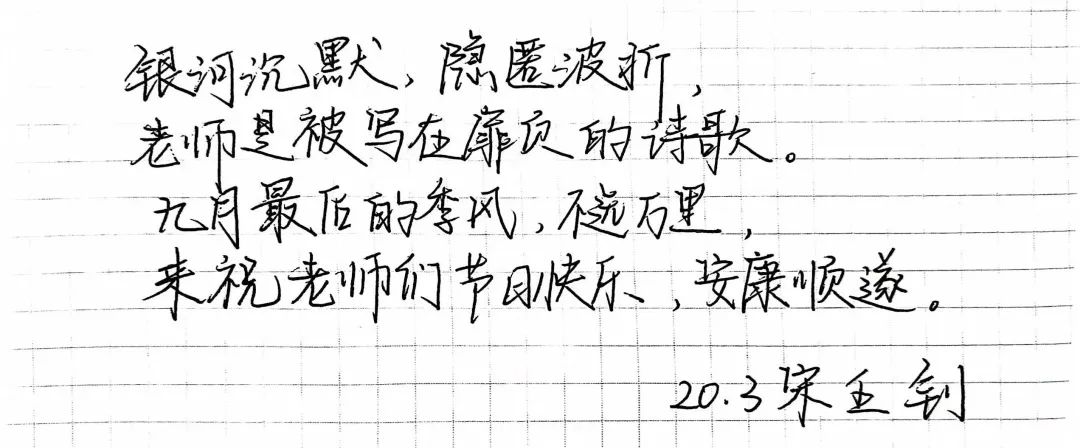 银河沉默，隐匿波折，
老师是被写在扉页的诗歌。
九月最后的季风，不远万里，
来祝老师们节日快乐，安康顺遂。
20.3宋玉钊